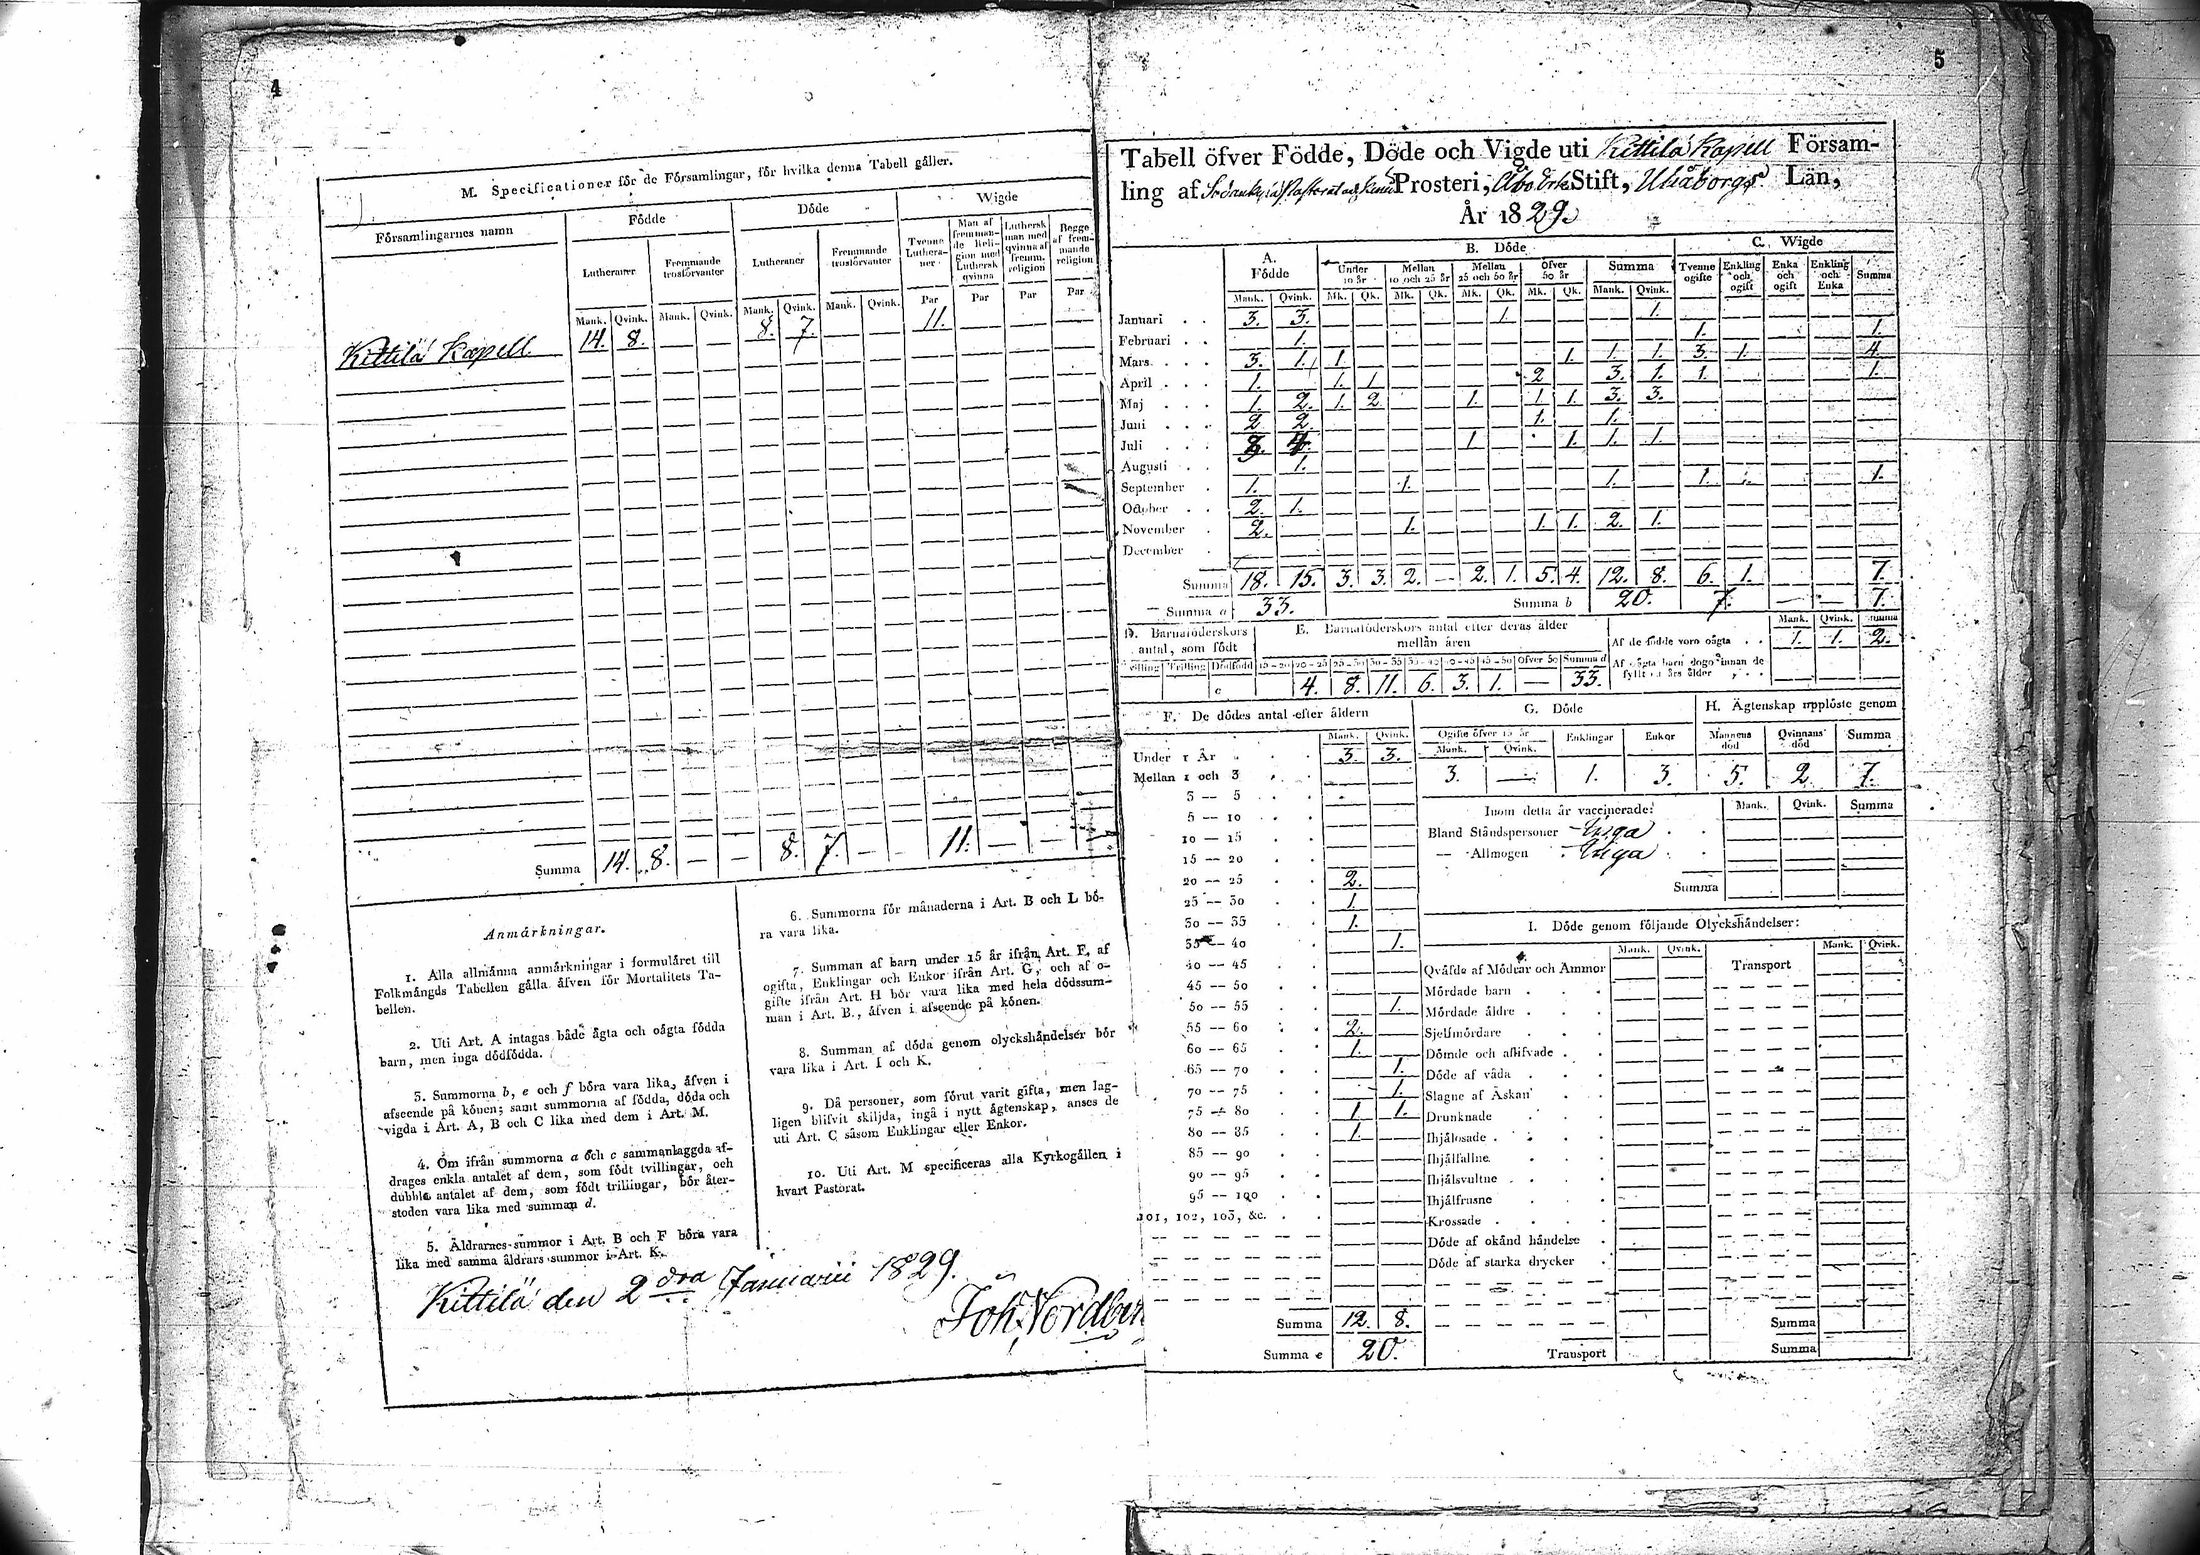 4
M. Specificationer för de Församlingar, för hvilka denna Tabell gäller.
Församlingarnes namn
Födde
Döde
Wigde
Lutheraner
Fremmande trosförvanter
Lutheraner
Fremmande trosförvanter
Tvenne Lutheraner
Man af fremmande Religion med Luthersk qvinna
Luthersk man med qvinna af fremm. religion
Begge af fremmande religion
Mank. Qvink. Mank. Qvink. Mank. Qvink. Mank. Qvink. Par Par Par Par
Kittilä Kapell. 14. 8. — — 8. 7. — — 11. — — —
Summa 14. 8. — — 8. 7. — — 11. — — —
Anmärkningar.
1. Alla allmänna anmärkningar i formuläret till
Folkmängds Tabellen gälla äfven för Mortalitets Ta-
bellen.
2. Uti Art. A intagas både ägta och oägta födda
barn, men inga dödfödda.
3. Summorna b, e och f böra vara lika, äfven i
afseende på könen; samt summorna af födda, döda och
vigda i Art. A, B och C lika med dem i Art. M.
4. Om ifrån summorna a och c sammanlaggda af-
drages enkla antalet af dem, som födt tvillingar, och
dubbla antalet af dem, som födt trillingar, bör åter-
stoden vara lika med summan d.
5. Åldrarnes summor i Art. B och F böra vara
lika med samma åldrars summor i Art. K.
6. Summorna för månaderna i Art. B och L bö-
ra vara lika.
7. Summan af barn under 15 år ifrån Art. F, af
ogifta, Enklingar och Enkor ifrån Art. G, och af o-
gifte ifrån Art. H bör vara lika med hela dödssum-
man i Art. B., äfven i afseende på könen.
8. Summan af döda genom olyckshändelser bör
vara lika i Art. I och K.
9. Då personer, som förut varit gifta, men lag-
ligen blifvit skiljda, ingå i nytt ägtenskap, anses de
uti Art. C såsom Enklingar eller Enkor.
10. Uti Art. M specificeras alla Kyrkogällen i
hvart Pastorat.
Kittilä den 2dra Januarii 1829.
Joh. Nordber
5
Tabell öfver Födde, Döde och Vigde uti Kittilä Kapell Försam-
ling af Sodankylä Pastorat och Prosteri, Åbo Stift, Uleåborgs Län,
År 1829.
A. Födde
B. Döde
C. Wigde
Under 10 år
Mellan 10 och 25 år
Mellan 25 och 50 år
Öfver 50 år
Summa
Tvenne ogifte
Enkling och ogift
Enka och ogift
Enkling och Enka
Summa
Mank. Qvink. Mk. Qk. Mk. Qk. Mk. Qk. Mk. Qk. Mank. Qvink.
Januari 3. 3. 1. 1.
Februari 1. 1. 1.
Mars 3. 1. 1. 1. 1. 1. 3. 1. 4.
April 1. 1. 1. 2 3. 1. 1. 1.
Maj 1. 2. 1. 2. 1. 1. 1. 3. 3.
Juni 2. 2. 1. 1.
Juli 1. 1. 1. 1.
Augusti 1.
September 1. 1. 1. 1. 1.
October 2. 1.
November 2. 1. 1. 1. 2. 1.
December
Summa 18. 15. 3. 3. 2. — 2. 1. 5. 4. 12. 8. 6. 1. 7.
Summa a 33. Summa b 20. 7. — — 7.
D. Barnaföderskors antal, som födt
Tvilling Trilling Dödfödd
c
E. Barnaföderskors antal efter deras ålder mellan åren
15-20 20-25 25-30 30-35 35-40 40-45 45-50 Öfver 50 Summa d
4. 8. 11. 6. 3. 1. — 33.
Mank. Qvink. Summa
Af de födde voro oägta 1. 1. 2.
Af oägta barn dogo innan de
fyllt ett års ålder
F. De dödes antal efter åldern
Mank. Qvink.
Under 1 År 3. 3.
Mellan 1 och 3
3 — 5
5 — 10
10 — 15
15 — 20
20 — 25 2.
25 — 30 1.
30 — 35 1.
35 — 40 1.
40 — 45
45 — 50
50 — 55 1.
55 — 60 2.
60 — 65 1.
65 — 70 1.
70 — 75 1.
75 — 80 1. 1.
80 — 85 1.
85 — 90
90 — 95
95 — 100
101, 102, 103, &c.
Summa 12. 8.
Summa e 20.
G. Döde
Ogifte öfver 15 år
Mank. Qvink.
Enklingar
Enkor
3. — 1. 3.
H. Ägtenskap upplöste genom
Mannens död
Qvinnans död
Summa
5. 2. 7.
Inom detta år vaccinerade: Mank. Qvink. Summa
Bland Ståndspersoner Inga
— Allmogen Inga
Summa
I. Döde genom följande Olyckshändelser:
Mank. Qvink. Mank. Qvink.
Qväfde af Mödrar och Ammor Transport
Mördade barn
Mördade äldre
Sjelfmördare
Dömde och aflifvade
Döde af våda
Slagne af Åskan
Drunknade
Ihjälosade
Ihjälfallne
Ihjälsvultne
Ihjälfrusne
Krossade
Döde af okänd händelse
Döde af starka drycker
Summa
Transport Summa